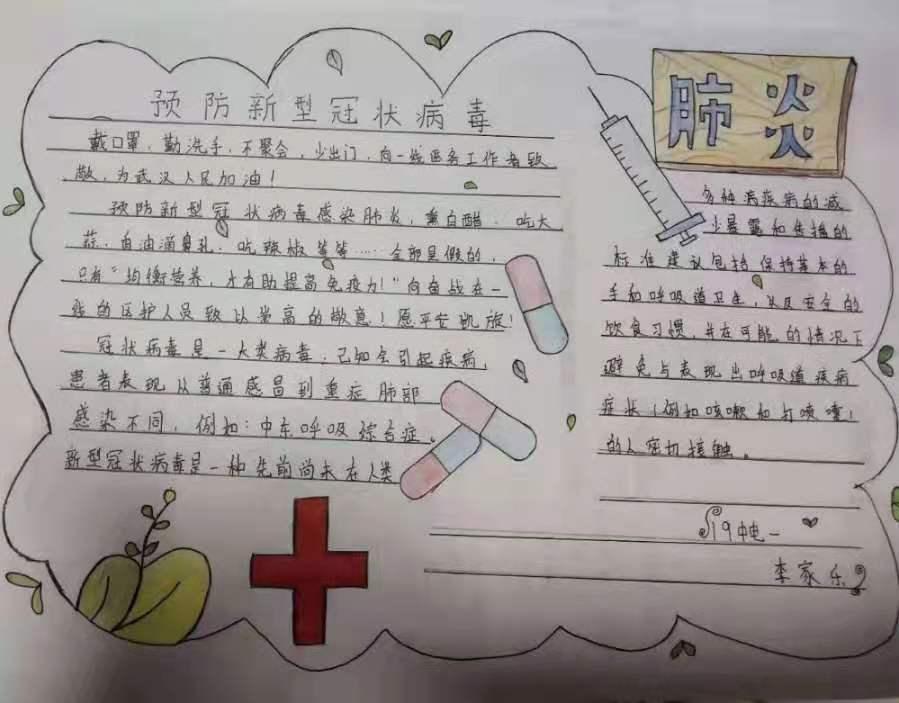 预防新型冠状病毒
戴口罩，勤洗手，不聚会，少出门，向一线医务工作者致
敬，为武汉人民加油！
预防新型冠状病毒感染肺炎，熏白醋、吃大
蒜、自油滴鼻孔、吃辣椒等等……全部是假的，
只有“均衡营养，才有助提高免疫力！”向奋战在一
线的医护人员致以崇高的敬意！愿平安凯旋！
冠状病毒是一大类病毒，已知会引起疾病，
患者表现从普通感冒到重症肺部
感染不同，例如：中东呼吸综合症。
新型冠状病毒是一种先前尚未在人类
肺炎
多种病疾病的减
少暴露和传播的
标准建议包括保持基本的
手和呼吸道卫生，以及安全的
饮食习惯，并在可能的情况下
避免与表现出呼吸道疾病
症状（例如咳嗽和打喷嚏）
的人密切接触。
19中电一
李家乐